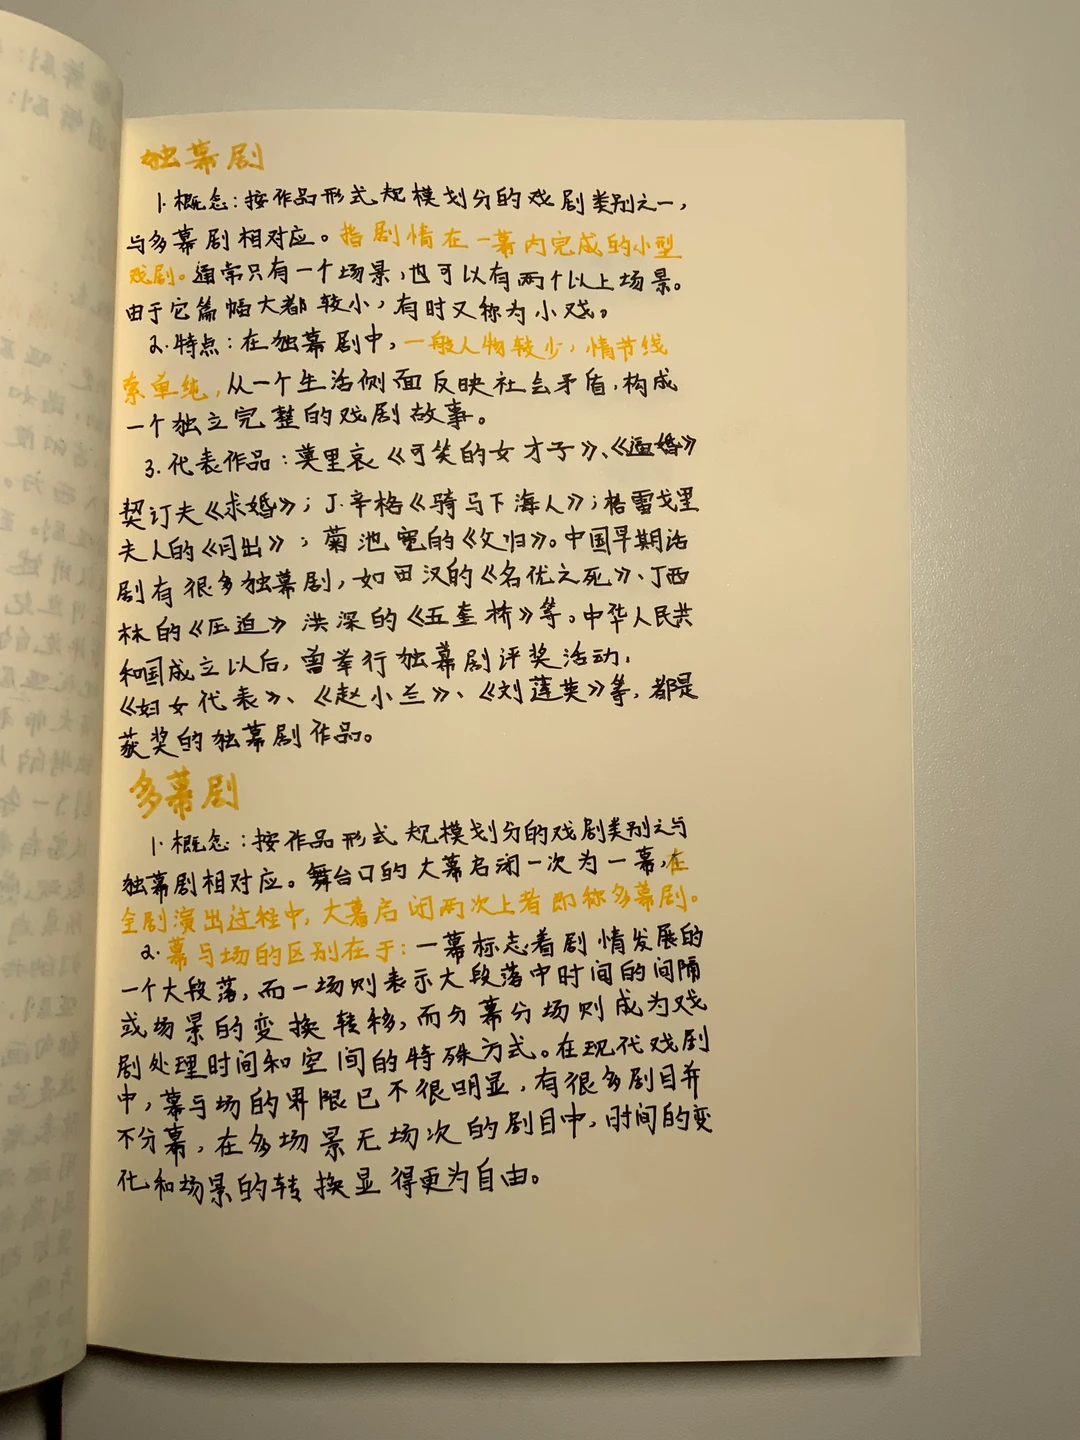 独幕剧
1.概念:按作品形式规模划分的戏剧类别之一,
与多幕剧相对应。指剧情在一幕内完成的小型
戏剧。通常只有一个场景,也可以有两个以上场景。
由于它篇幅大都较小,有时又称为小戏。
2.特点:在独幕剧中,一般人物较少,情节线
索单纯,从一个生活侧面反映社会矛盾,构成
一个独立完整的戏剧故事。
3.代表作品:莫里哀《可笑的女才子》、《逼婚》
契订夫《求婚》;J.辛格《骑马下海人》;格雷戈里
夫人的《月出》;菊池宽的《父归》。中国早期话
剧有很多独幕剧,如田汉的《名优之死》、丁西
林的《压迫》洪深的《五奎桥》等。中华人民共
和国成立以后,曾举行独幕剧评奖活动,
《妇女代表》、《赵小兰》、《刘莲英》等,都是
获奖的独幕剧作品。
多幕剧
1.概念:按作品形式规模划分的戏剧类别之与
独幕剧相对应。舞台口的大幕启闭一次为一幕,在
全剧演出过程中,大幕启闭两次上者即称多幕剧。
2.幕与场的区别在于:一幕标志着剧情发展的
一个大段落,而一场则表示大段落中时间的间隔
或场景的变换转移,而分幕分场则成为戏
剧处理时间和空间的特殊方式。在现代戏剧
中,幕与场的界限已不很明显,有很多剧目并
不分幕,在多场景无场次的剧目中,时间的变
化和场景的转换显得更为自由。